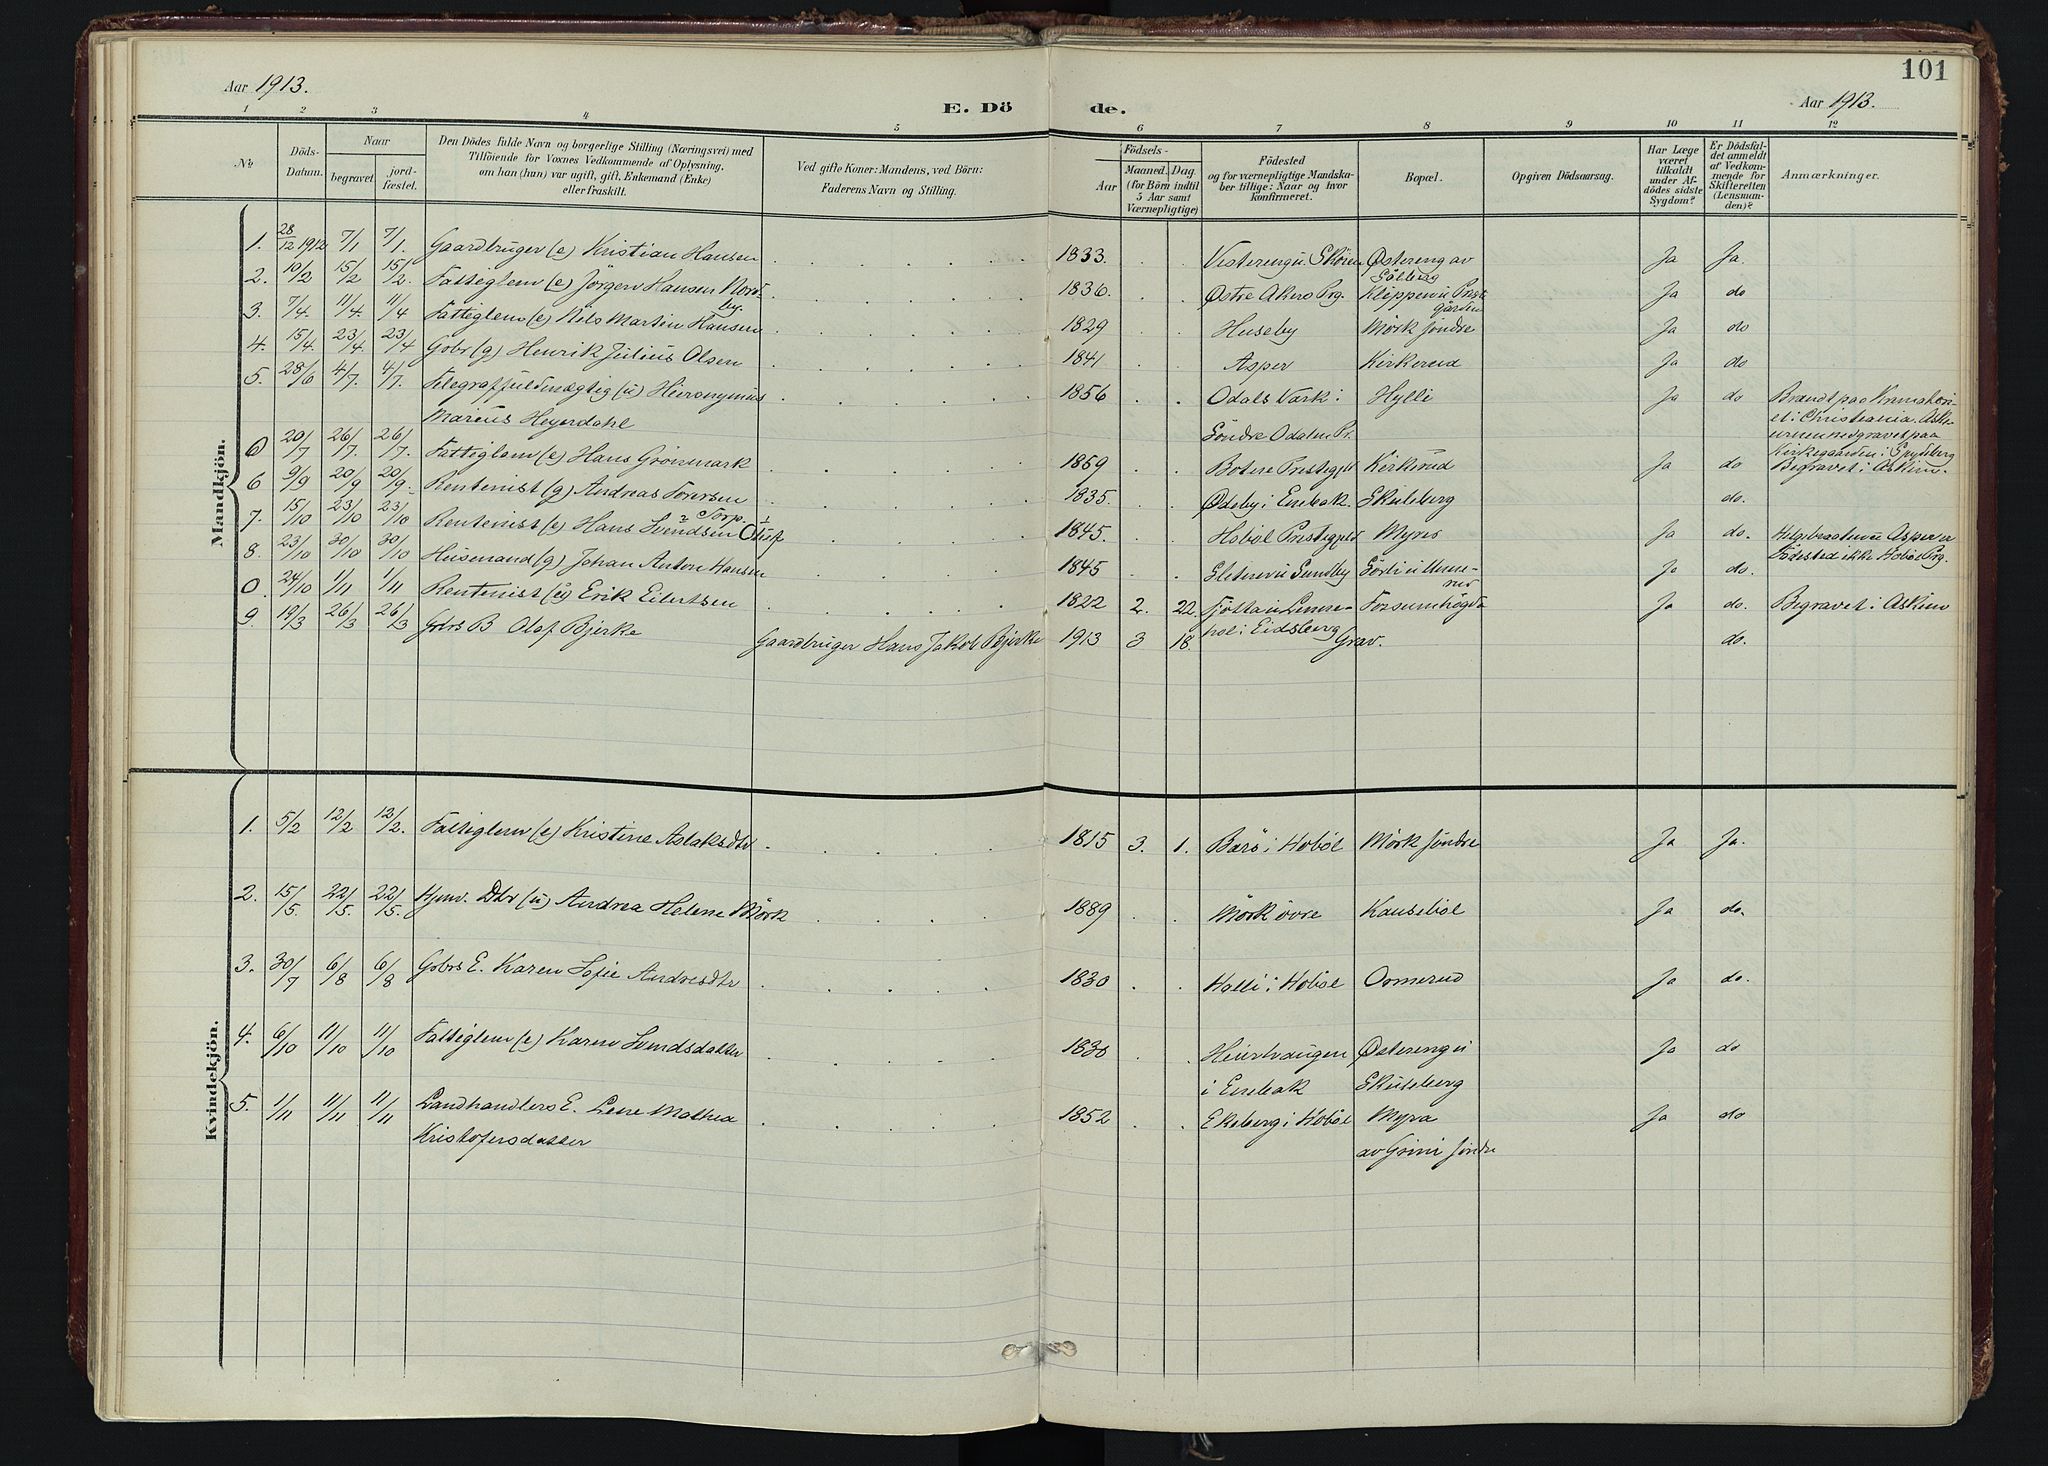 101
Aar 1913.
E. Dö de.
Aar 1913.
1 2 3 4 5 6 7 8 9 10 11 12
No
Döds-Datum.
Naar
begravet.
jordfæstet.
Den Dödes fulde Navn og borgerlige Stilling (Næringsvei) med
Tilföiende for Voxnes Vedkommende af Oplysning.
om han (hun) var ugift, gift, Enkemand (Enke)
eller fraskilt.
Ved gifte Koner: Mandens, ved Börn:
Faderens Navn og Stilling.
Födsels-
Aar
Maaned. Dag.
(for Börn indtil
5 Aar samt
Værnepligtige)
Födested
og for værnepligtige Mandska-
ber tillige: Naar og hvor
konfirmeret.
Bopæl.
Opgiven Dödsaarsag.
Har Læge
været
tilkaldt
under Af-
dödes sidste
Sygdom?
Er Dödsfal-
det anmeldt
af Vedkom-
mende for
Skifteretten
(Lensman-
den)?
Anmærkninger.
Mandkjön.
1. 28/12 1912 7/1 7/1. Gaardbruger (e) Kristian Hansen 1833. Vestereng u. Skören Østereng av Ja Ja.
Solberg
2. 10/2 15/2 15/2. Fattiglem (e) Jörgen Hansen Nord- 1836. Østre Akers Prg. Kleppen u Prest- Ja do
by. gården
3. 7/4. 11/4. 11/4 Fattiglem (e) Nils Martin Hansen 1829 Huseby Mörk söndre Ja do
4. 15/4. 23/4. 23/4 Gbr (g) Henrik Julius Olsen 1841 Asper Kirkerud Ja do
5. 28/6 4/7. 4/7. Telegraffuldmægtig (u) Hieronymus 1856 Odals Værk i Hylli Ja do Brandt paa Krematori-
Marcus Heyerdahl Söndre Odalen Pr. et i Christiania. Aske-
urnen nedgravet paa
Kirkegaarden i Spydeberg
0 20/7 26/7. 26/7. Fattiglem (e) Hans Grönmark 1859 Botne Prestegjeld Kirkerud Ja do Begravet i Askim.
6 9/9 20/9 20/9. Rentenist (g) Andreas Torersen 1835. Ødeby i Enebak. Skuleberg do.
7. 15/10 23/10 23/10 Rentenist (e) Hans Svendsen Torp 1845. Hobøl Prestegjeld Myrer Ja do.
8. 23/10 30/10 30/10 Husmand (g) Johan Anton Hansen 1845 Sletner u Sundby Sörli u Ja do. Födested ikke Hobøl Prg.
0. 24/10 1/11 1/11 Rentenist (g) Erik Eilertsen 1822 2. 22. i Eidsberg Ja do. Begravet i Askim
9. 19/3 26/3 26/3 Gbrs B Olaf Bjerke Gaardbruger Hans Jakob Bjerke 1913 3 18. Grav. do.
Kvindekjön.
1. 5/2 12/2 12/2. Fattiglem (e) Kristine Aslaksdtr 1815 3. 1. Bærö i Hobøl Mörk söndre Ja Ja.
2. 15/5. 22/5. 22/5. Hjmv. Dtr (u) Andrea Helene Mörk 1889 Mörk övre Kausebøl Ja do.
3. 30/7 6/8 6/8 Gbrs E. Karen Sofie Andresdtr 1830 Halli i Hobøl Ormerud Ja do.
4. 6/10 11/10 11/10 Fattiglem (e) Karen Svendsdatter 1830 Heierhaugen Østereng u Ja do
i Enebak Skuleberg
5. 1/11 11/11 11/11 Landhandlers E. Lene Mathea 1852 Ekeberg i Hobøl Myra Ja do
Kristofersdatter av Grini söndre